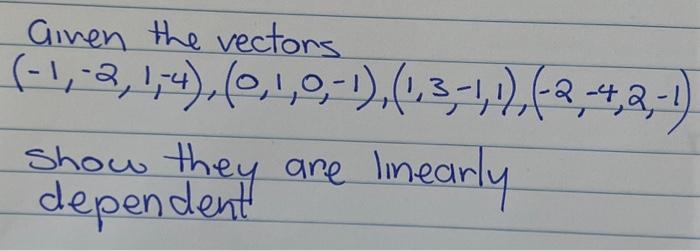 Given the vectors
(-1,-2,1,-4), (0,1,0,-1), (1,3,-1,1), (-2,-4,2,-1)
show they are linearly
dependent